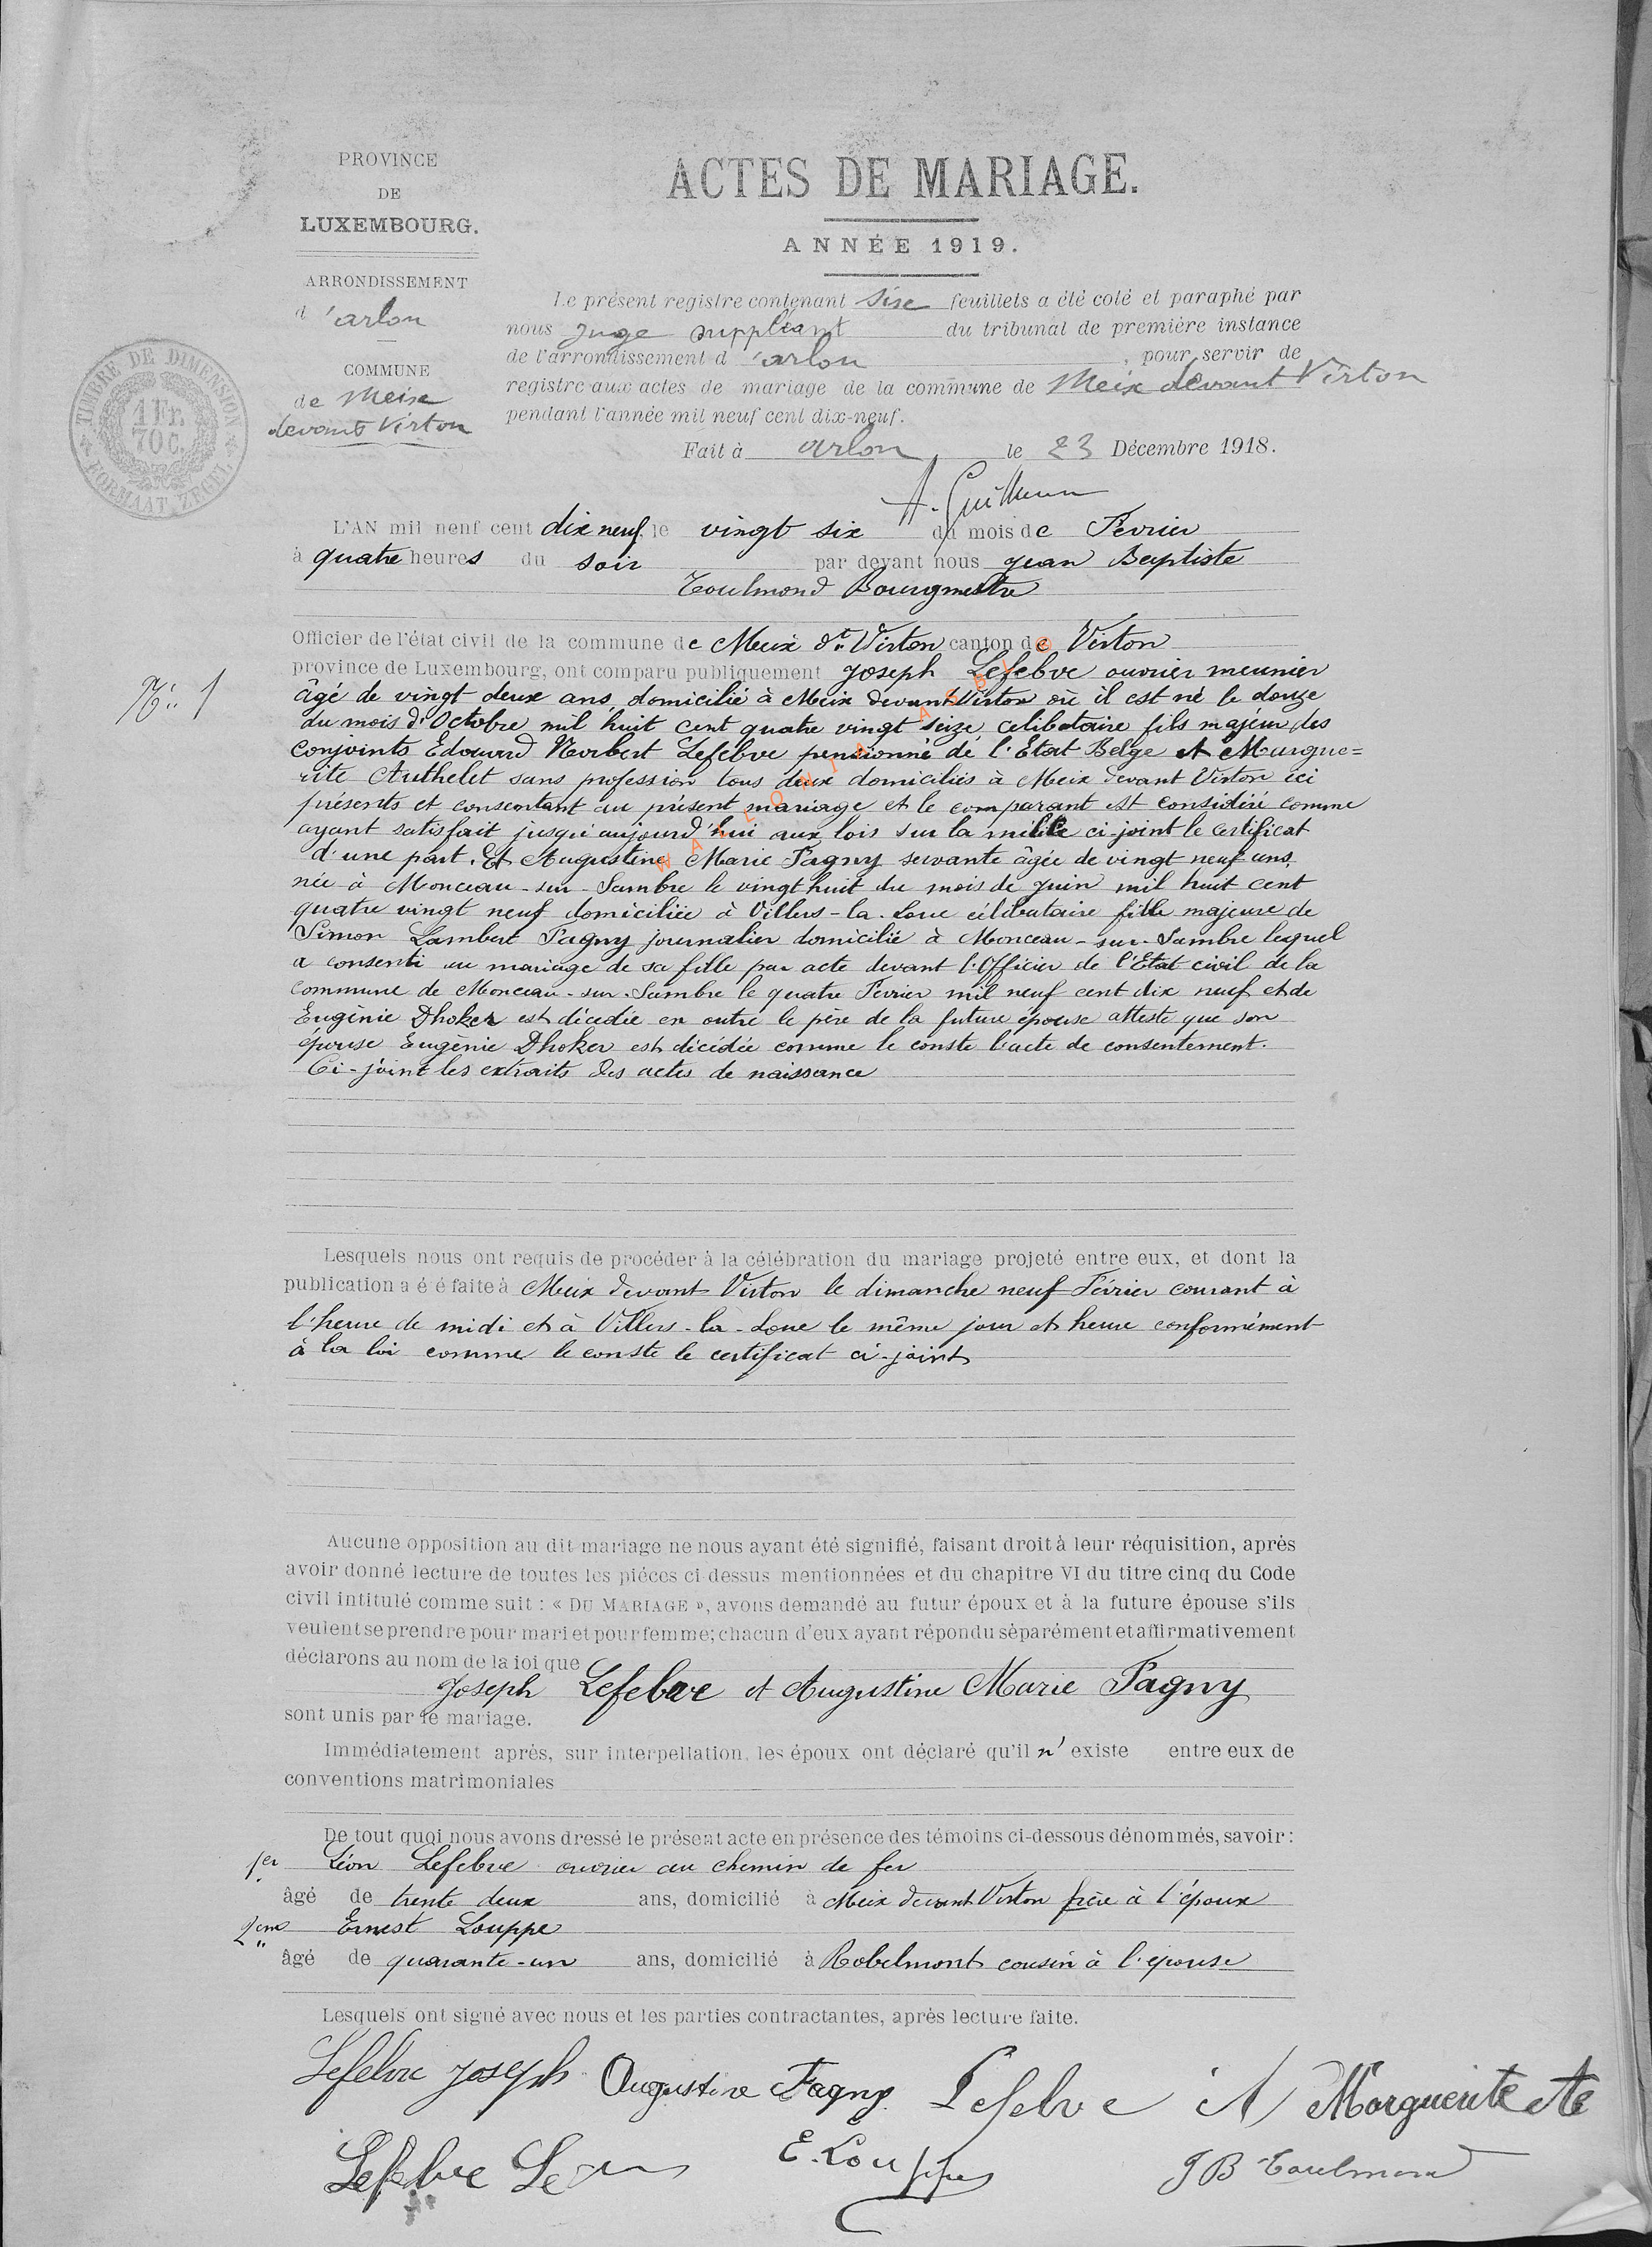 PROVINCE
DE
LUXEMBOURG.
ARRONDISSEMENT
d'arlon
COMMUNE
de Meix
devant Virton
TIMBRE DE DIMENSION
1 Fr.
70 C.
FORMAAT ZEGEL
ACTES DE MARIAGE.
ANNÉE 1919.
Le présent registre contenant Six feuillets a été coté et paraphé par
nous Juge suppléant du tribunal de première instance
de l'arrondissement d'arlon, pour servir de
registre aux actes de mariage de la commune de Meix devant Virton
pendant l'année mil neuf cent dix-neuf.
Fait à Arlon le 23 Décembre 1918.
L'AN mil neuf cent dix neuf, le vingt six du mois de Février
à quatre heures du soir par devant nous Jean Baptiste
Toulmond Bourgmestre
Officier de l'état civil de la commune de Meix dt Virton canton de Virton
province de Luxembourg, ont comparu publiquement Joseph Lefebvre ouvrier meunier
N° 1
âgé de vingt deux ans, domicilié à Meix devant Virton où il est né le douze
du mois d'Octobre mil huit cent quatre vingt seize, celibataire fils majeur des
conjoints Edouard Norbert Lefebvre pensionné de l'Etat Belge et Margue=
rite Authelet sans profession tous deux domiciliés à Meix devant Virton ici
présents et consentant au présent mariage et le comparant est considéré comme
ayant satisfait jusqu'aujourd'hui aux lois sur la milice ci-joint le certificat
d'une part. Et Augustine Marie Fagny servante âgée de vingt neuf ans
née à Monceau-sur-Sambre le vingt huit du mois de Juin mil huit cent
quatre vingt neuf domiciliée à Villers-la-Loue célibataire fille majeure de
Simon Lambert Fagny journalier domicilié à Monceau-sur-Sambre lequel
a consenti au mariage de sa fille par acte devant l'Officier de l'Etat civil de la
commune de Monceau-sur-Sambre le quatre Fevrier mil neuf cent dix neuf et de
Eugénie Dhoker est décédée en outre le père de la future épouse atteste que son
épouse Eugénie Dhoker est décédée comme le conste l'acte de consentement.
Ci-joint les extraits des actes de naissance
WALLONIA ASBL ©
Lesquels nous ont requis de procéder à la célébration du mariage projeté entre eux, et dont la
publication a é é faite à Meix devant Virton le dimanche neuf Février courant à
l'heure de midi et à Villers-la-Loue le même jour et heure conformément
à la loi comme le conste le certificat ci-joint
Aucune opposition au dit mariage ne nous ayant été signifié, faisant droit à leur réquisition, après
avoir donné lecture de toutes les piéces ci dessus mentionnées et du chapitre VI du titre cinq du Code
civil intitulé comme suit : « DU MARIAGE », avons demandé au futur époux et à la future épouse s'ils
veulent se prendre pour mari et pour femme; chacun d'eux ayant répondu séparément et affirmativement
déclarons au nom de la loi que
Joseph Lefebvre et Augustine Marie Fagny
sont unis par le mariage.
Immédiatement aprés, sur interpellation, les époux ont déclaré qu'il n'existe entre eux de
conventions matrimoniales
De tout quoi nous avons dressé le présent acte en présence des témoins ci-dessous dénommés, savoir :
1er Léon Lefebvre ouvrier au chemin de fer
âgé de trente deux ans, domicilié à Meix devant Virton frère à l'époux
2eme Ernest Louppe
âgé de quarante-un ans, domicilié à Robelmont cousin à l'épouse
Lesquels ont signé avec nous et les parties contractantes, après lecture faite.
Lefebvre Joseph Augustine Fagny Lefebvre Marguerite
Lefebvre Léon E. Louppe JB Toulmond